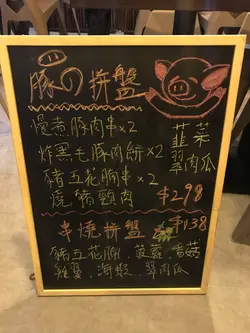 豚の拼盤
慢煮豚肉串×2
炸黑毛豚肉餅×2
豬五花腩串×2
燒豬頸肉
韮菜
翠肉瓜
$298
串燒拼盤 $138
豬五花腩,菠蘿,香菇
雞翼,海蝦,翠肉瓜